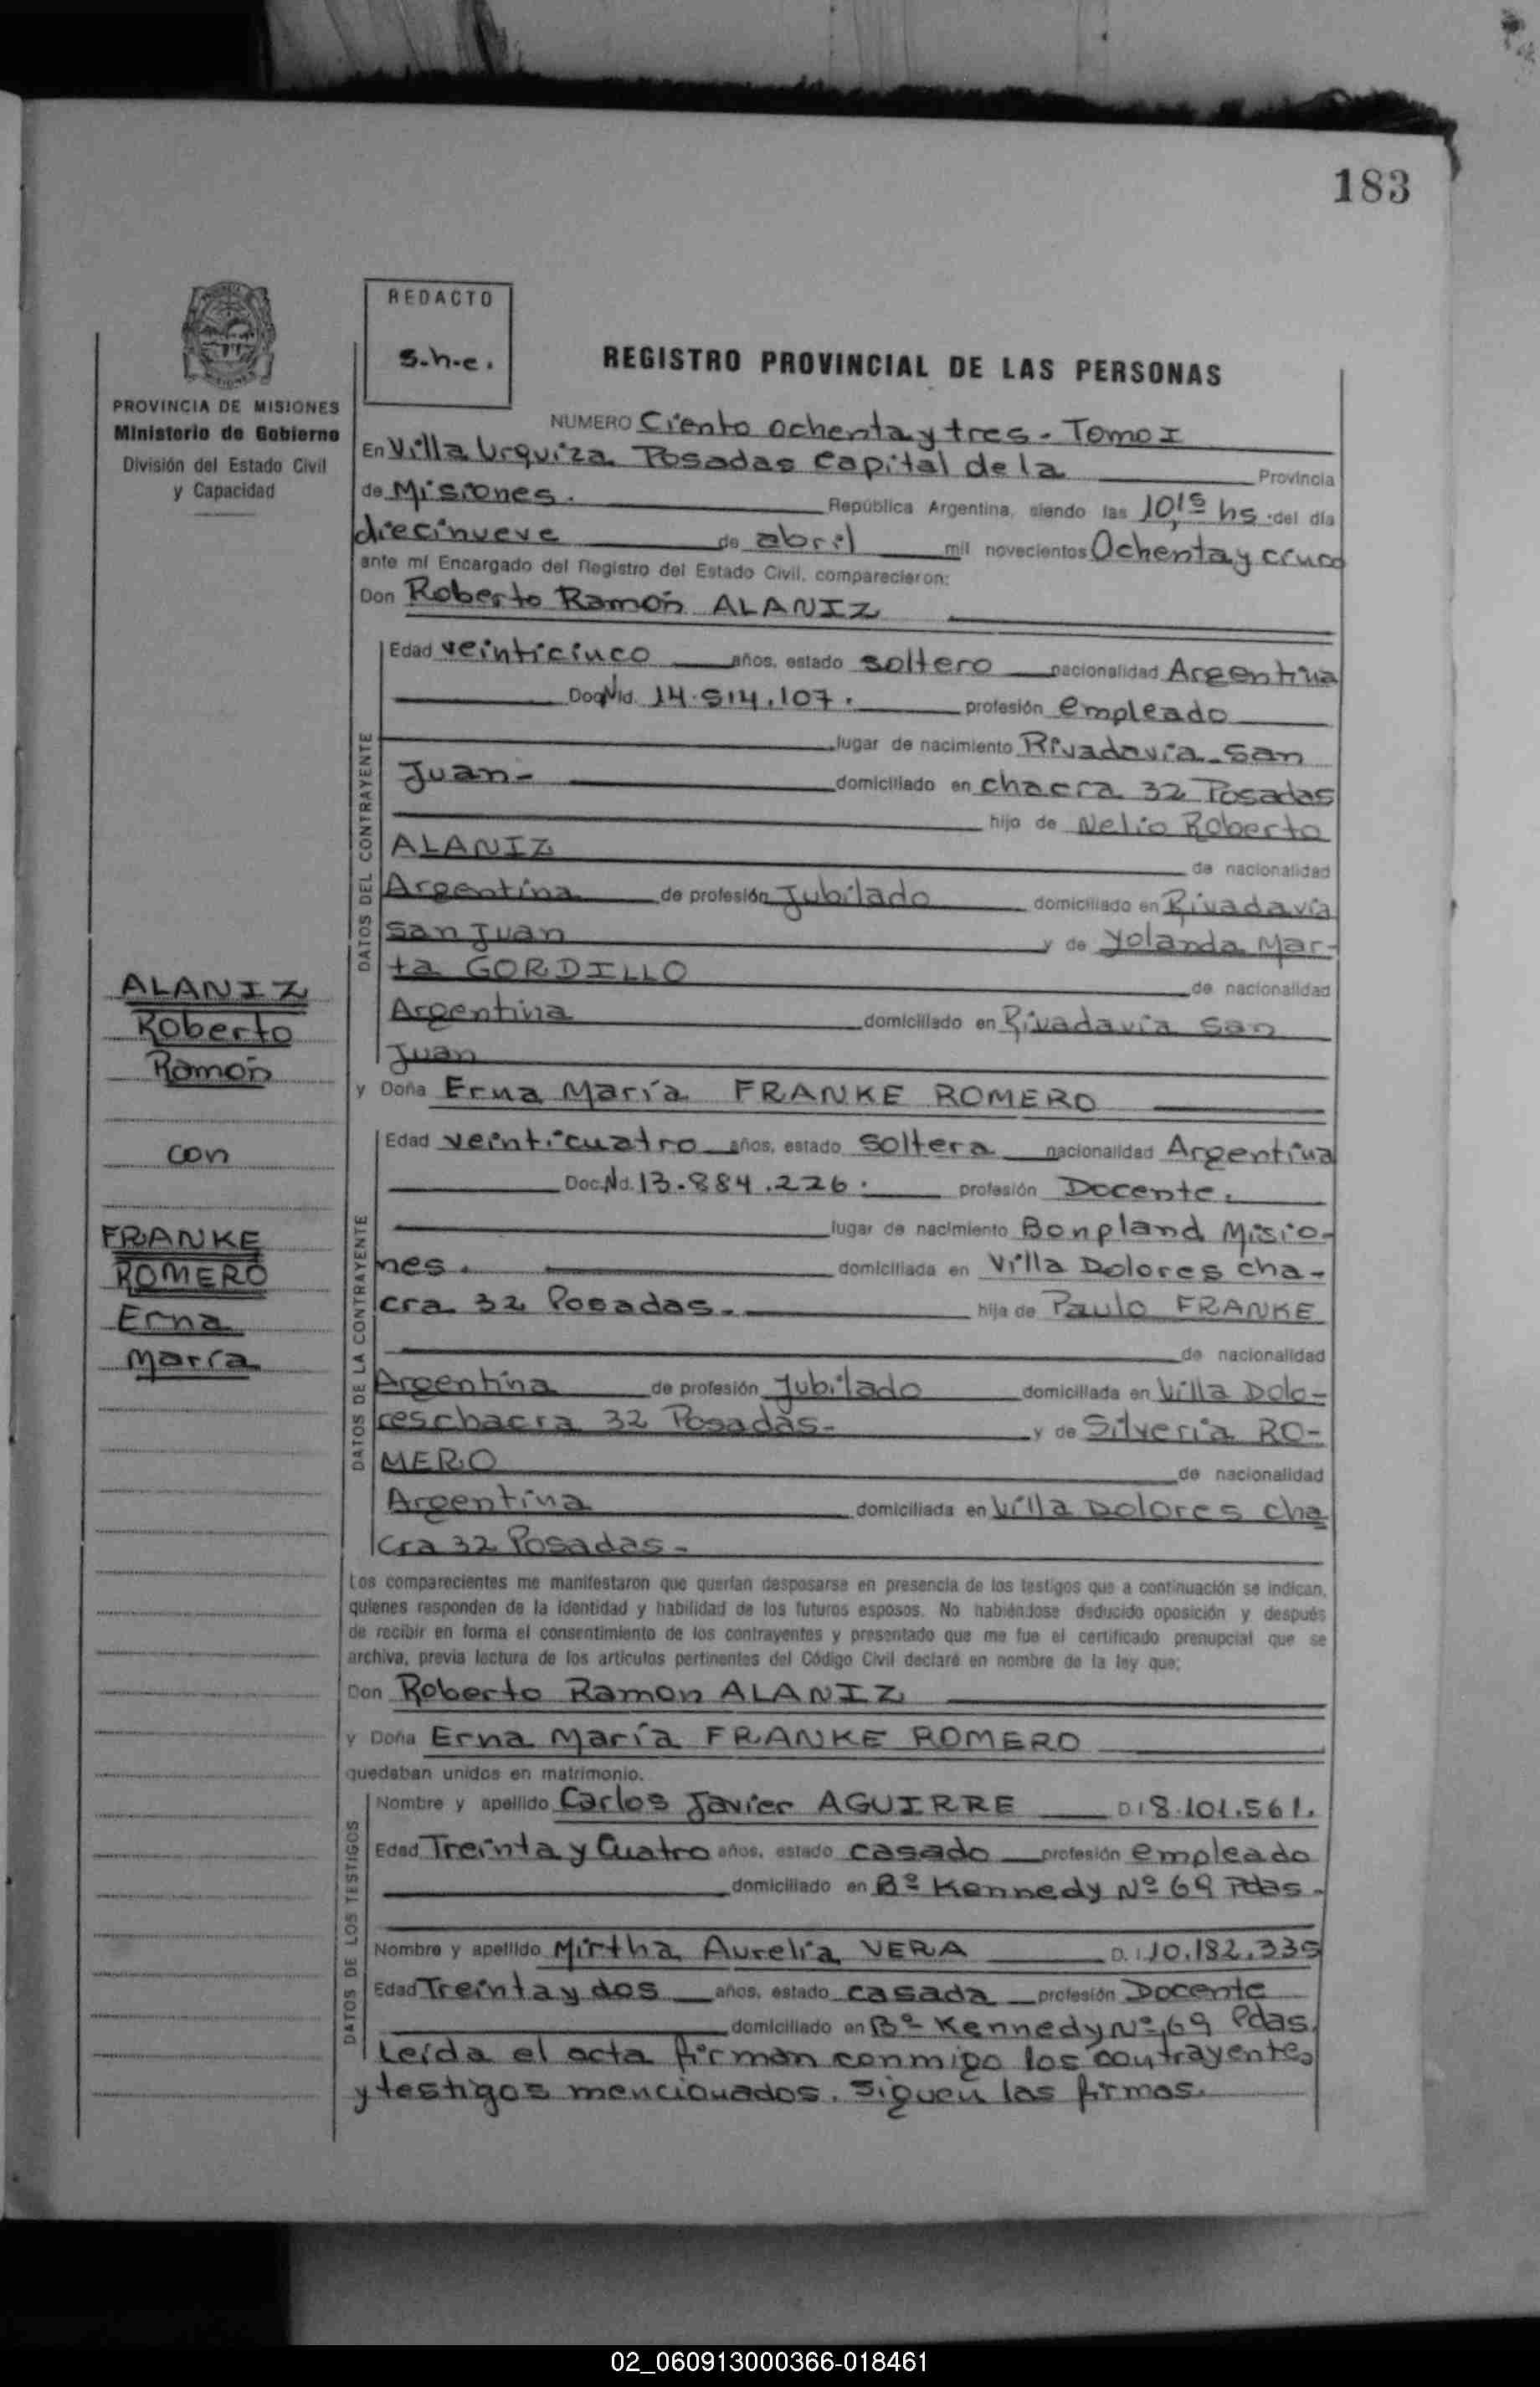 183
REDACTO
s.h.e.
REGISTRO PROVINCIAL DE LAS PERSONAS
PROVINCIA DE MISIONES
Ministerio de Gobierno
División del Estado Civil
y Capacidad
NUMERO Ciento ochenta y tres - Tomo I
En Villa Urquiza Posadas Capital de la Provincia
de Misiones. República Argentina, siendo las 10,15 hs. del día
diecinueve de abril mil novecientos Ochenta y cinco
ante mí Encargado del Registro del Estado Civil, comparecieron:
Don Roberto Ramón ALANIZ
DATOS DEL CONTRAYENTE
Edad veinticinco años, estado soltero nacionalidad Argentina
Doc. Nid. 14.514.107. profesión empleado
lugar de nacimiento Rivadavia - San
Juan - domiciliado en chacra 32 Posadas
hijo de Nelio Roberto
ALANIZ de nacionalidad
Argentina de profesión Jubilado domiciliado en Rivadavia
San Juan y de Yolanda Mar-
ta GORDILLO de nacionalidad
Argentina domiciliado en Rivadavia San
Juan
y Doña Erna María FRANKE ROMERO
DATOS DE LA CONTRAYENTE
Edad veinticuatro años, estado soltera nacionalidad Argentina
Doc. Nd. 13.884.226. profesión Docente.
lugar de nacimiento Bonpland Misio-
nes. domiciliada en Villa Dolores cha-
cra 32 Posadas. hija de Paulo FRANKE
de nacionalidad
Argentina de profesión Jubilado domiciliada en Villa Dolo-
res chacra 32 Posadas- y de Silveria RO-
MERO de nacionalidad
Argentina domiciliada en Villa Dolores cha
cra 32 Posadas -
ALANIZ
Roberto
Ramón
con
FRANKE
ROMERO
Erna
María
Los comparecientes me manifestaron que querían desposarse en presencia de los testigos que a continuación se indican,
quienes responden de la identidad y habilidad de los futuros esposos. No habiéndose deducido oposición y después
de recibir en forma el consentimiento de los contrayentes y presentado que me fue el certificado prenupcial que se
archiva, previa lectura de los artículos pertinentes del Código Civil declaré en nombre de la ley que:
Don Roberto Ramon ALANIZ
y Doña Erna María FRANKE ROMERO
quedaban unidos en matrimonio.
DATOS DE LOS TESTIGOS
Nombre y apellido Carlos Javier AGUIRRE D.I 8.101.561.
Edad Treinta y Cuatro años, estado casado profesión empleado
domiciliado en Bº Kennedy Nº 69 Pdas.
Nombre y apellido Mirtha Aurelia VERA D.I. 10.182.335
Edad Treinta y dos años, estado casada profesión Docente
domiciliado en Bº Kennedy Nº 69 Pdas.
Leída el acta firman conmigo los contrayentes
y testigos mencionados. Siguen las firmas.
02_060913000366-018461